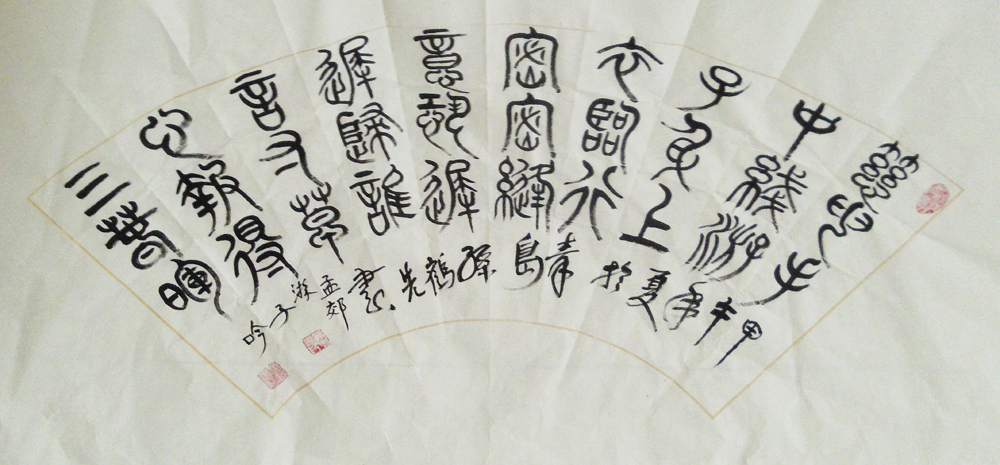 慈母手
中綫游
子身上
衣臨行
密密縫
意恐遲
遲歸誰
言寸草
心報得
三春暉
甲午年夏於青島孫鶴先書
孟郊
游子
吟